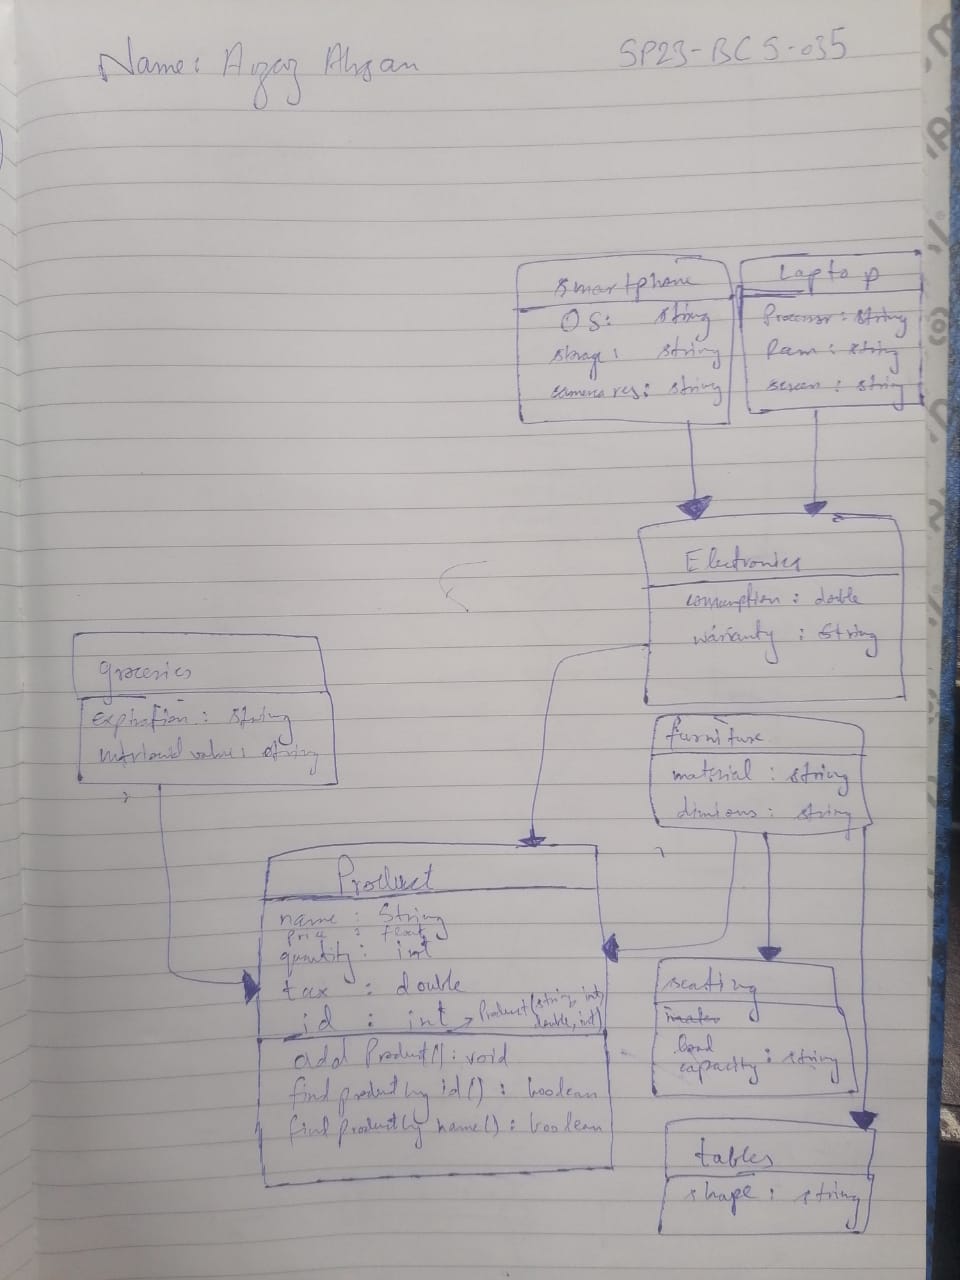 Name: Aizaz Ahsan
SP23-BCS-035
smartphone
OS: string
storage: string
camera res: string
Laptop
Processor: string
Ram: string
screen: string
Electronics
consumption: double
warranty: String
groceries
expiration: string
nutrional value: string
furniture
material: string
dimions: string
Product
name: String
price: float
quantity: int
tax: double
id: int → Product(string, int, double, int)
add Product(): void
find product by id(): boolean
find product by name(): boolean
seating
load capacity: string
tables
shape: string